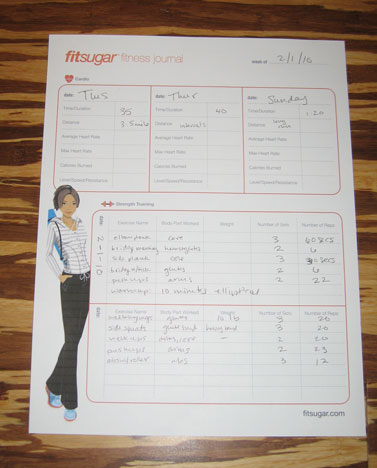 fitsugar fitness journal
week of 2/1/10
Cardio
date: Tues date: Thur date: Sunday
Time/Duration 35 Time/Duration 40 Time/Duration 1:20
Distance 3.5 mile Distance intervals Distance long run
Average Heart Rate Average Heart Rate Average Heart Rate
Max Heart Rate Max Heart Rate Max Heart Rate
Calories Burned Calories Burned Calories Burned
Level/Speed/Resistance Level/Speed/Resistance Level/Speed/Resistance
Strength Training
DATE: Exercise Name Body Part Worked Weight Number of Sets Number of Reps
2-1-10
elbow plank core 3 60 secs
bridge hamstrings 2 6
side plank core 3 30 secs
bridge glutes 2 6
push-ups arms 2 22
warm-up: 10 minutes elliptical
DATE: Exercise Name Body Part Worked Weight Number of Sets Number of Reps
glutes 10 lb 3 20
side squats band 3 20
arms, core - 2 20
push-ups arms 2 23
abs 3 12
fitsugar.com